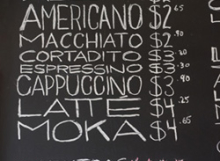 AMERICANO $2.65
MACCHIATO $2.90
CORTADITO $3.20
ESPRESSINO $3.30
CAPPUCCINO $3.90
LATTÉ $4.25
MOKA $4.65